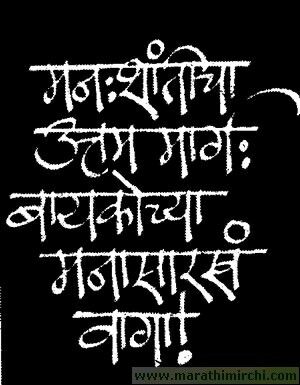 मनःशांतीचा
उत्तम मार्ग:
बायकोच्या
मनासारखं
वागा!
www.marathimirchi.com